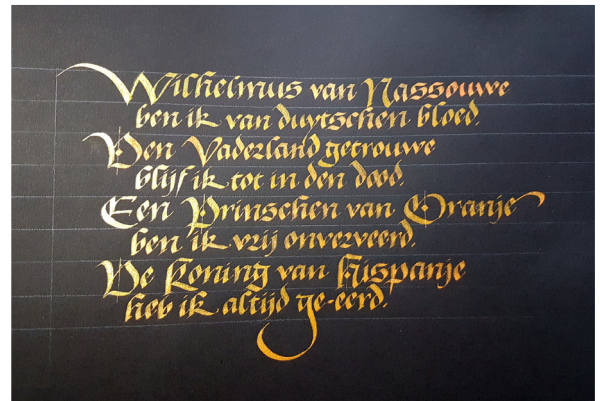 Wilhelmus van Nassouwe
ben ik van duytschen bloed.
Den Vaderland getrouwe
blijf ik tot in den dood.
Een Prinschen van Oranje
ben ik vrij onverveerd.
De Koning van Hispanje
heb ik altijd ge-eerd.